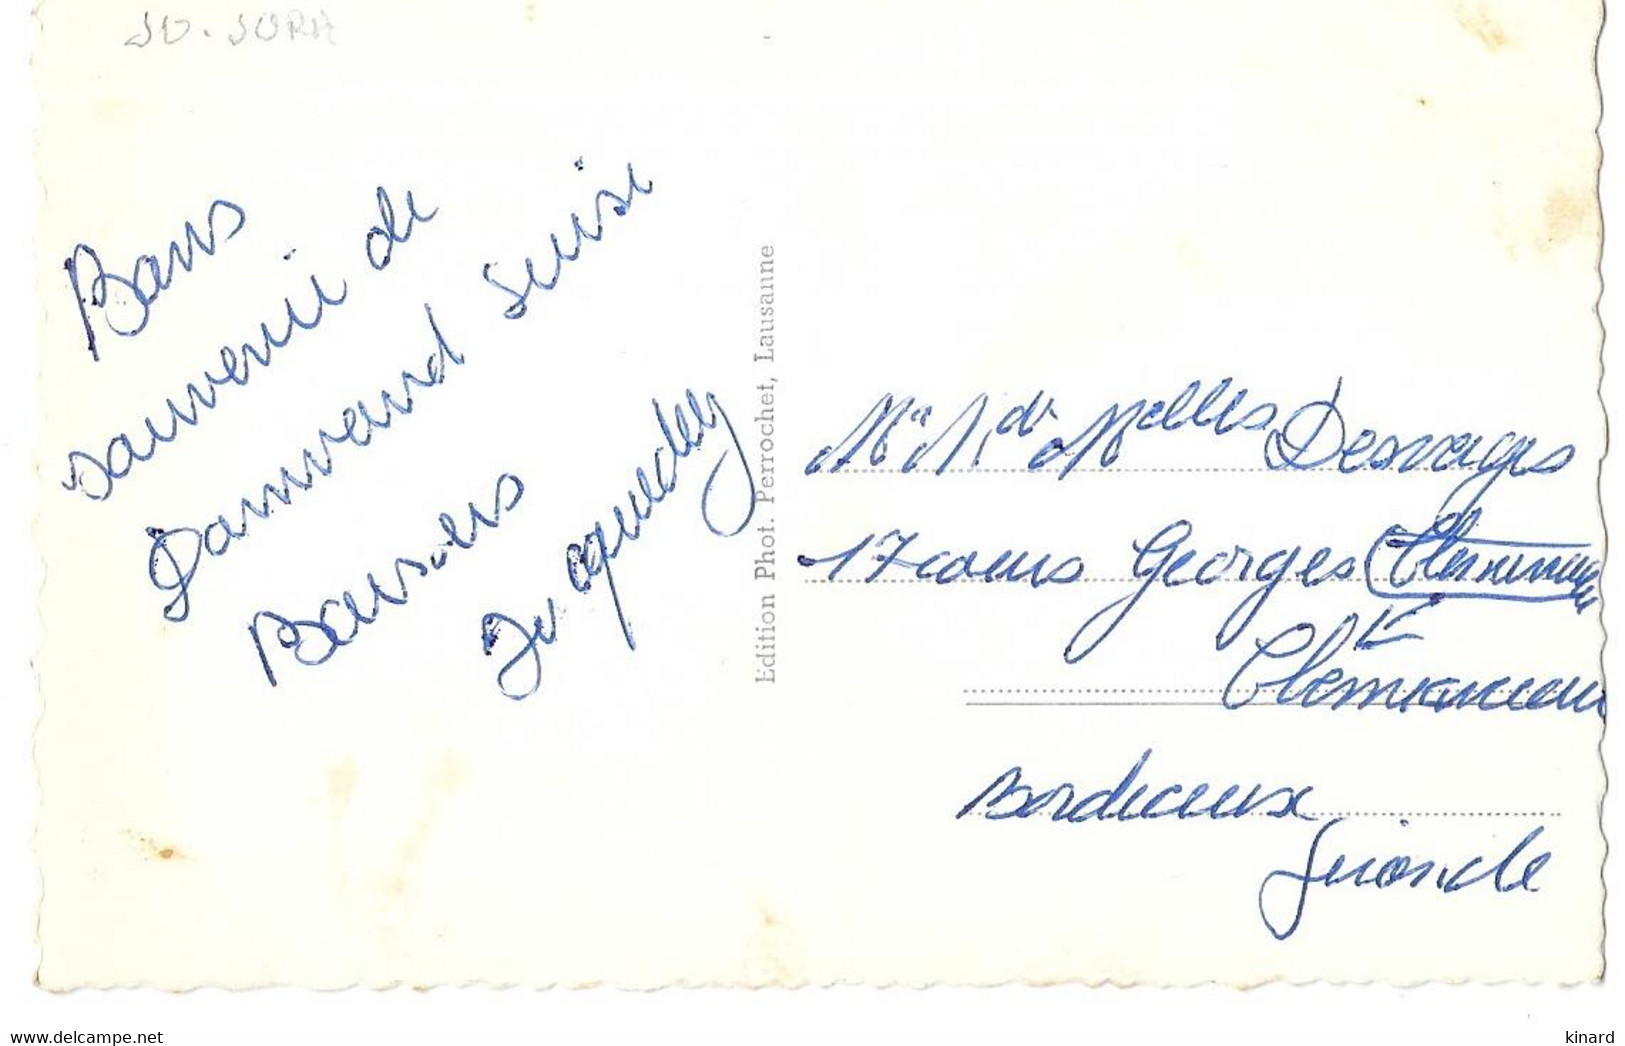 JU. JURA
Bons
souvenir de
Damvand Suise
Baisers
Edition Phot. Perrochet, Lausanne
Melles Desvages
17 cours Georges Clemenceau
Clemenceau
Bordeaux
Gironde
www.delcampe.net
kinard